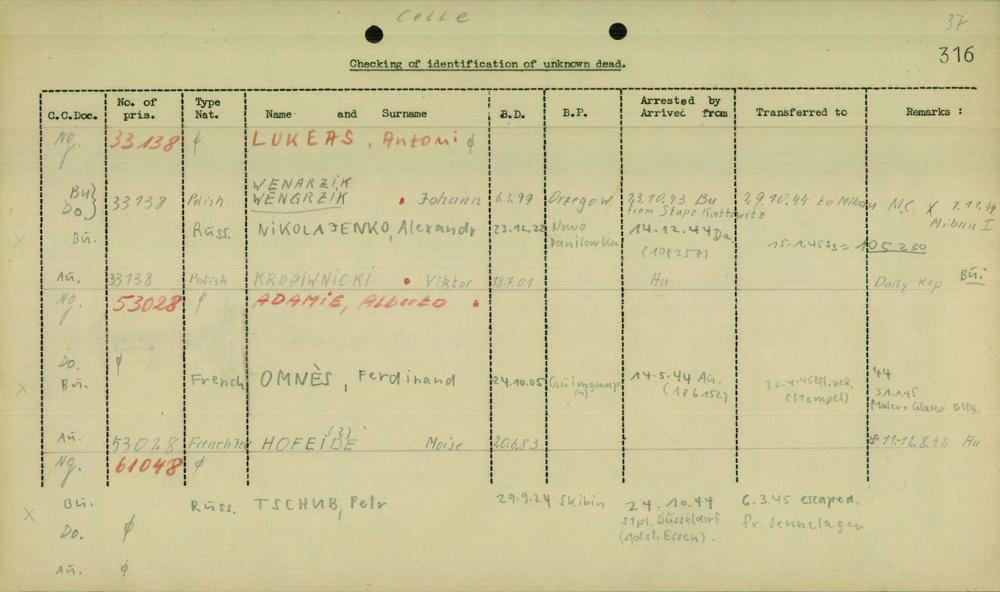 Celle
37
316
Checking of identification of unknown dead.
C.C.Doc. No. of pris. Type Nat. Name and Surname B.D. B.P. Arrested by Arrived from Transferred to Remarks :
Ng. 33138 ϕ LUKEAS, Antoni ϕ
WENARZIK
Bu} Do.} 33138 Polish WENGRZIK • Johann 6.3.99 Orzegow 23.10.43 Bu 29.10.44 to Mibau N.C. X 1.11.44
from Stapo Kattowitz Mibau I
X Bu. Russ. NIKOLAJENKO, Alexandr 23.12.22 Nowo Danilowka 14.12.44 Da (108257) 15.1.45 = 105230
Au. 33138 Polish KROPIWNICKI • Viktor 18.7.01 Au Daily Rep Bu:
Ng. 53028 ϕ ADAMIE, Alberto •
Do. ϕ
X Bu. French OMNÈS, Ferdinand 24.10.05 Guimgamp (n) 14.5.44 Au. (186152) 22.4.45 (Stempel) 44
31.1.45
Maler + Glaser Bttg.
Au. 53028 French HOFEIDE (?) Moise 20.6.83 11-12.8.42 Au
Ng. 61048 ϕ
X Bu. Russ. TSCHUB, Petr 29.9.24 Skibin 24.10.44 6.3.45 escaped.
Stpl. Düsseldorf fr Sennelager
Do. ϕ (Adst. Essen).
Au. ϕ